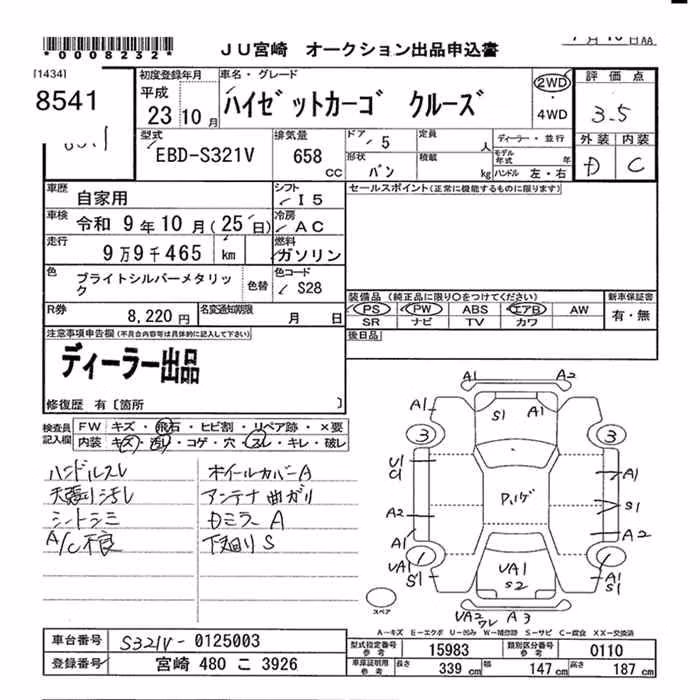 *0008232*
JU宮崎 オークション出品申込書
[1434]
8541
初度登録年月
平成
23 10 月
車名・グレード
ハイゼットカーゴ クルーズ
2WD
・
4WD
評価点
3.5
外装 内装
D C
型式
EBD-S321V
排気量
658
cc
ドア
5
定員
人
ディーラー・並行
モデル年式 年
形状
バン
積載
kg
ハンドル 左・右
車歴
自家用
シフト
I5
セールスポイント(正常に機能するものに限ります)
車検
令和 9年 10月(25日)
冷房
AC
走行
9万9千465 km
燃料
ガソリン
色
ブライトシルバーメタリック
色替
色コード
S28
R券
8,220円
名変通知期限
月 日
装備品(純正品に限り○をつけてください)
新車保証書
PS PW ABS エアB AW
有・無
SR ナビ TV カワ
後日品
注意事項申告欄(不具合内容等は具体的に記入して下さい)
ディーラー出品
修復歴 有〔箇所 〕
検査員記入欄
FW キズ・飛石・ヒビ割・リペア跡・×要
内装 キズ・汚れ・コゲ・穴・スレ・キレ・破レ
ハンドルスレ
天張り汚レ
シートシミ
A/C不良
ホイールカバーA
アンテナ曲ガリ
Dミラー A
下廻りS
A1 A2
A1 S1 A1
3 3
U1
C1
A1
S1
A2
A2
A1
1 1
UA1
S1
UA1
S2
A1
S1
スペア
UA2
ワレ
A3
A-キズ E-エクボ U-凹み W-補修跡 S-サビ C-腐食 XX-交換済
車台番号
S321V-0125003
登録番号
宮崎 480 こ 3926
型式指定番号
参考
15983
類別区分番号
参考
0110
車庫証明用
参考
長さ
339 cm
幅
147 cm
高さ
187 cm